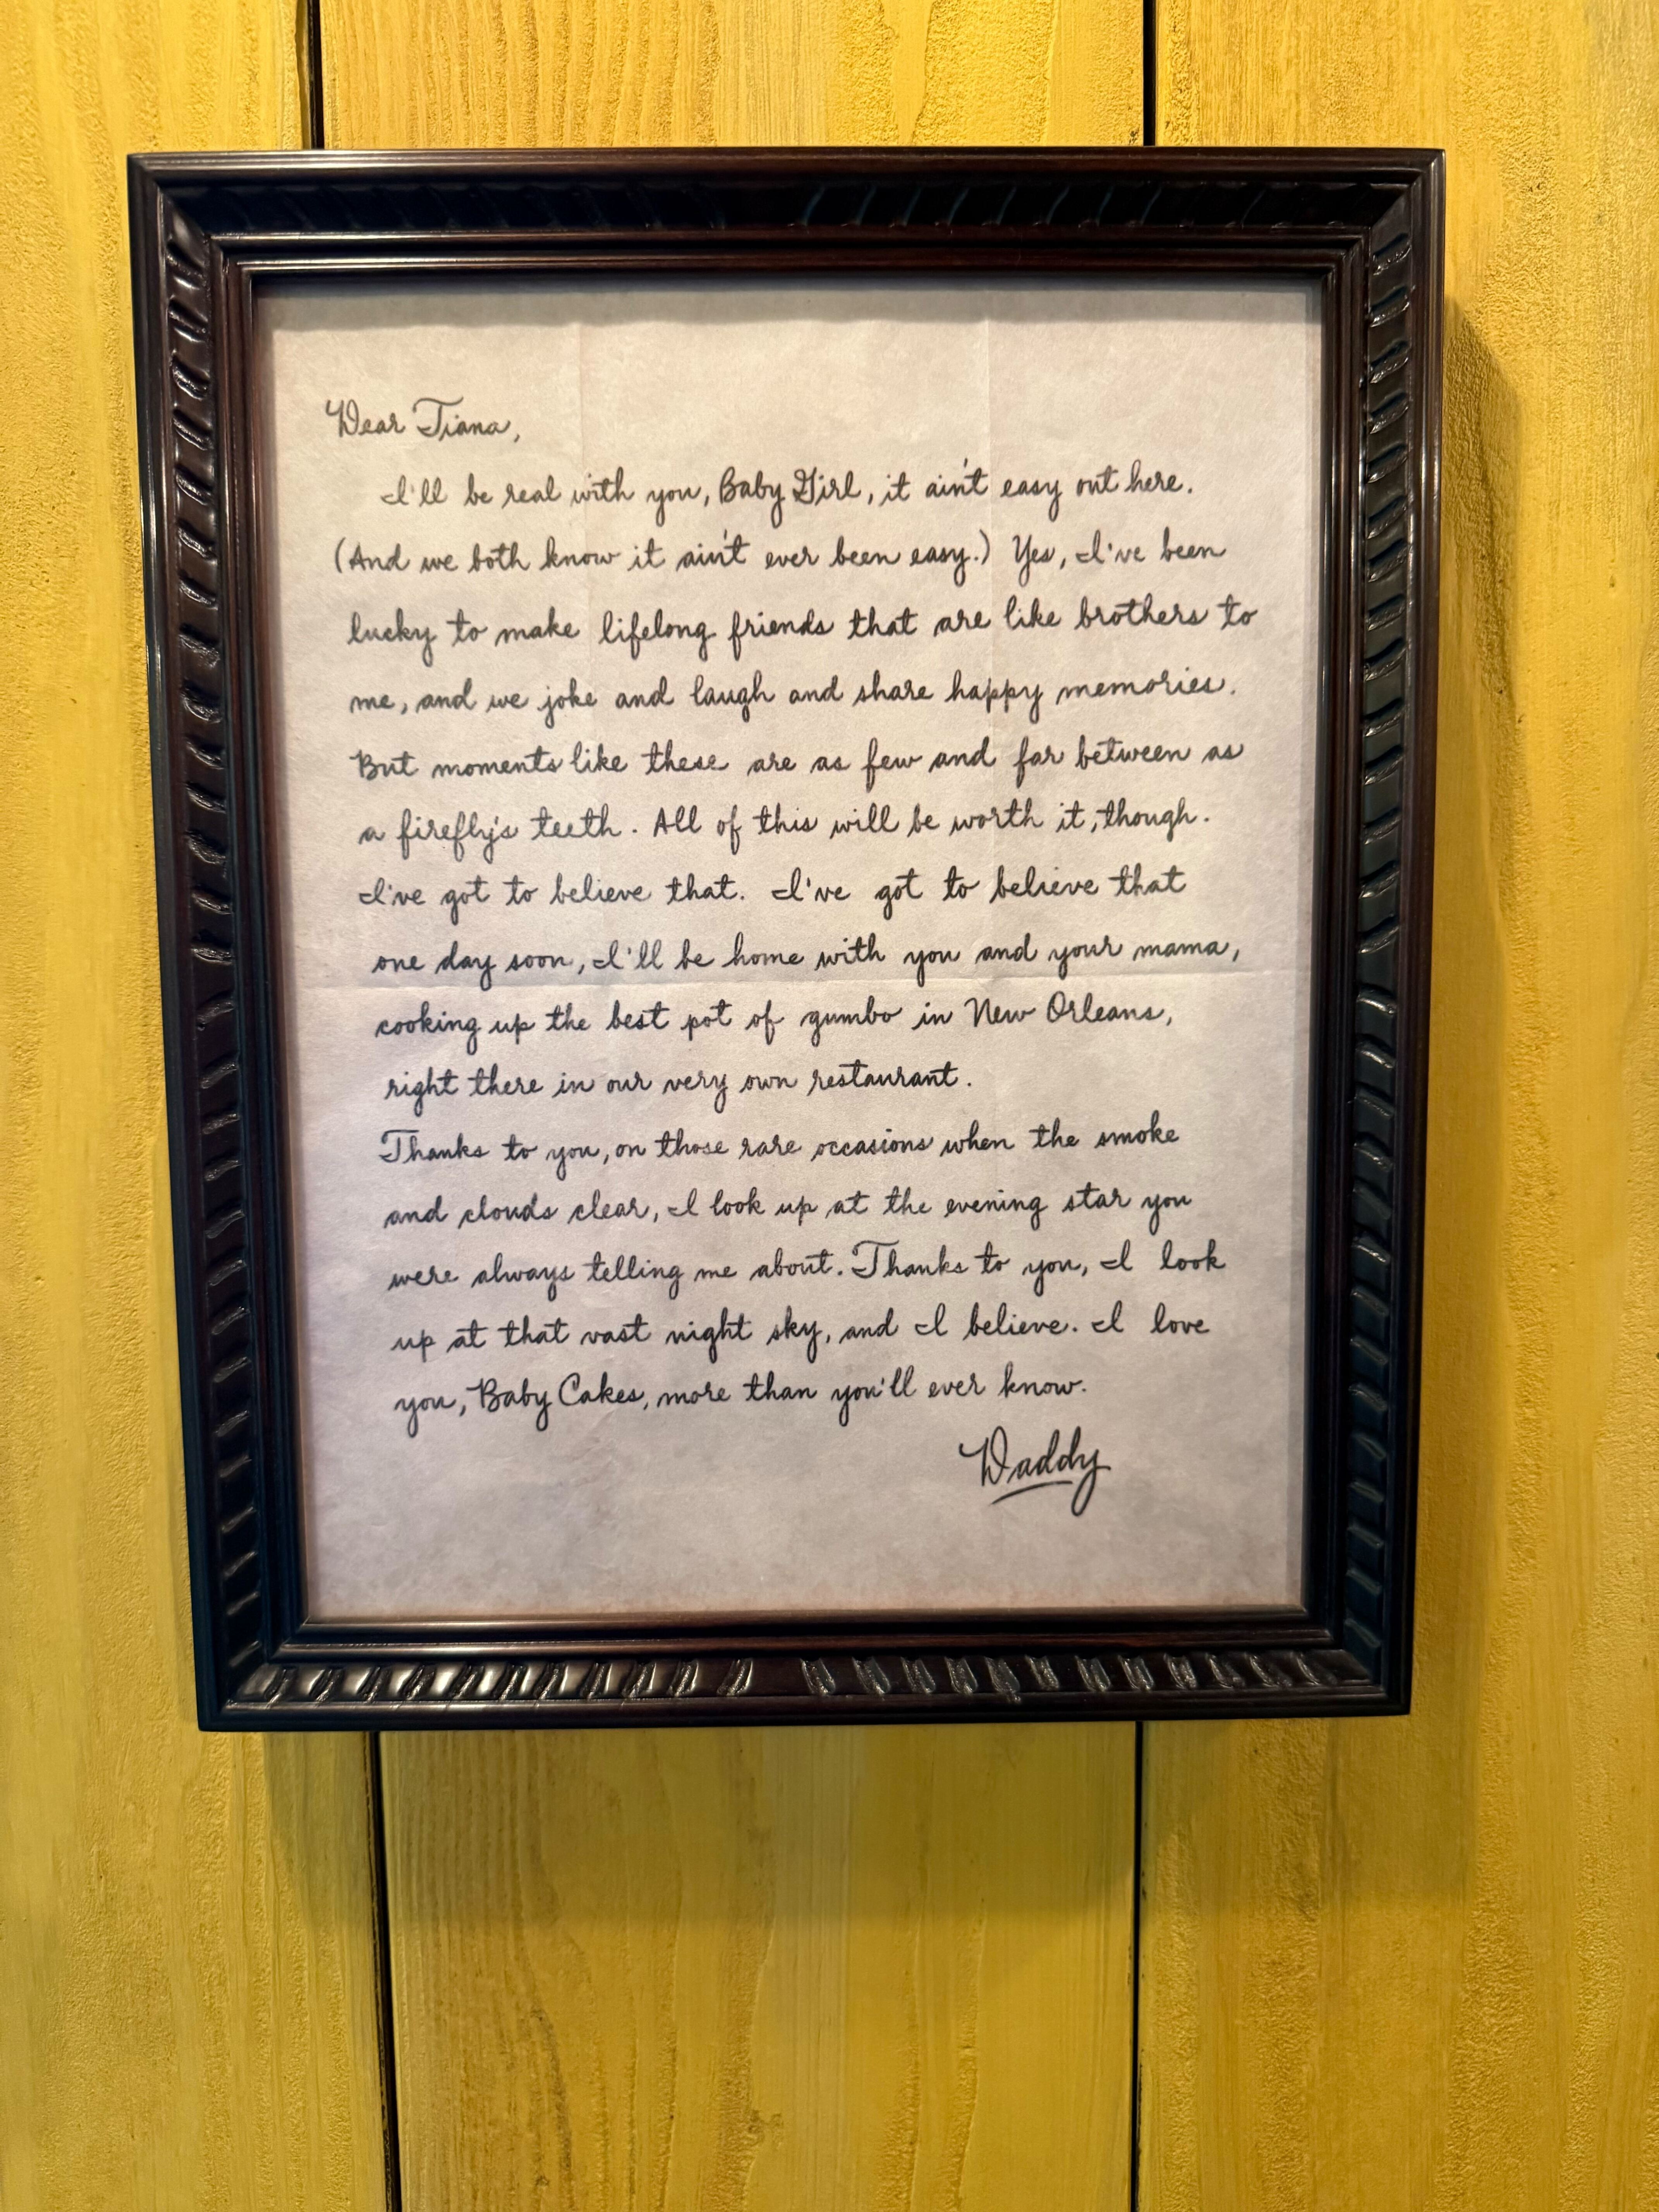 Dear Tiana,
I'll be real with you, Baby Girl, it ain't easy out here.
(And we both know it ain't ever been easy.) Yes, I've been
lucky to make lifelong friends that are like brothers to
me, and we joke and laugh and share happy memories.
But moments like these are as few and far between as
a firefly's teeth. All of this will be worth it, though.
I've got to believe that. I've got to believe that
one day soon, I'll be home with you and your mama,
cooking up the best pot of gumbo in New Orleans,
right there in our very own restaurant.
Thanks to you, on those rare occasions when the smoke
and clouds clear, I look up at the evening star you
were always telling me about. Thanks to you, I look
up at that vast night sky, and I believe. I love
you, Baby Cakes, more than you'll ever know.
Daddy